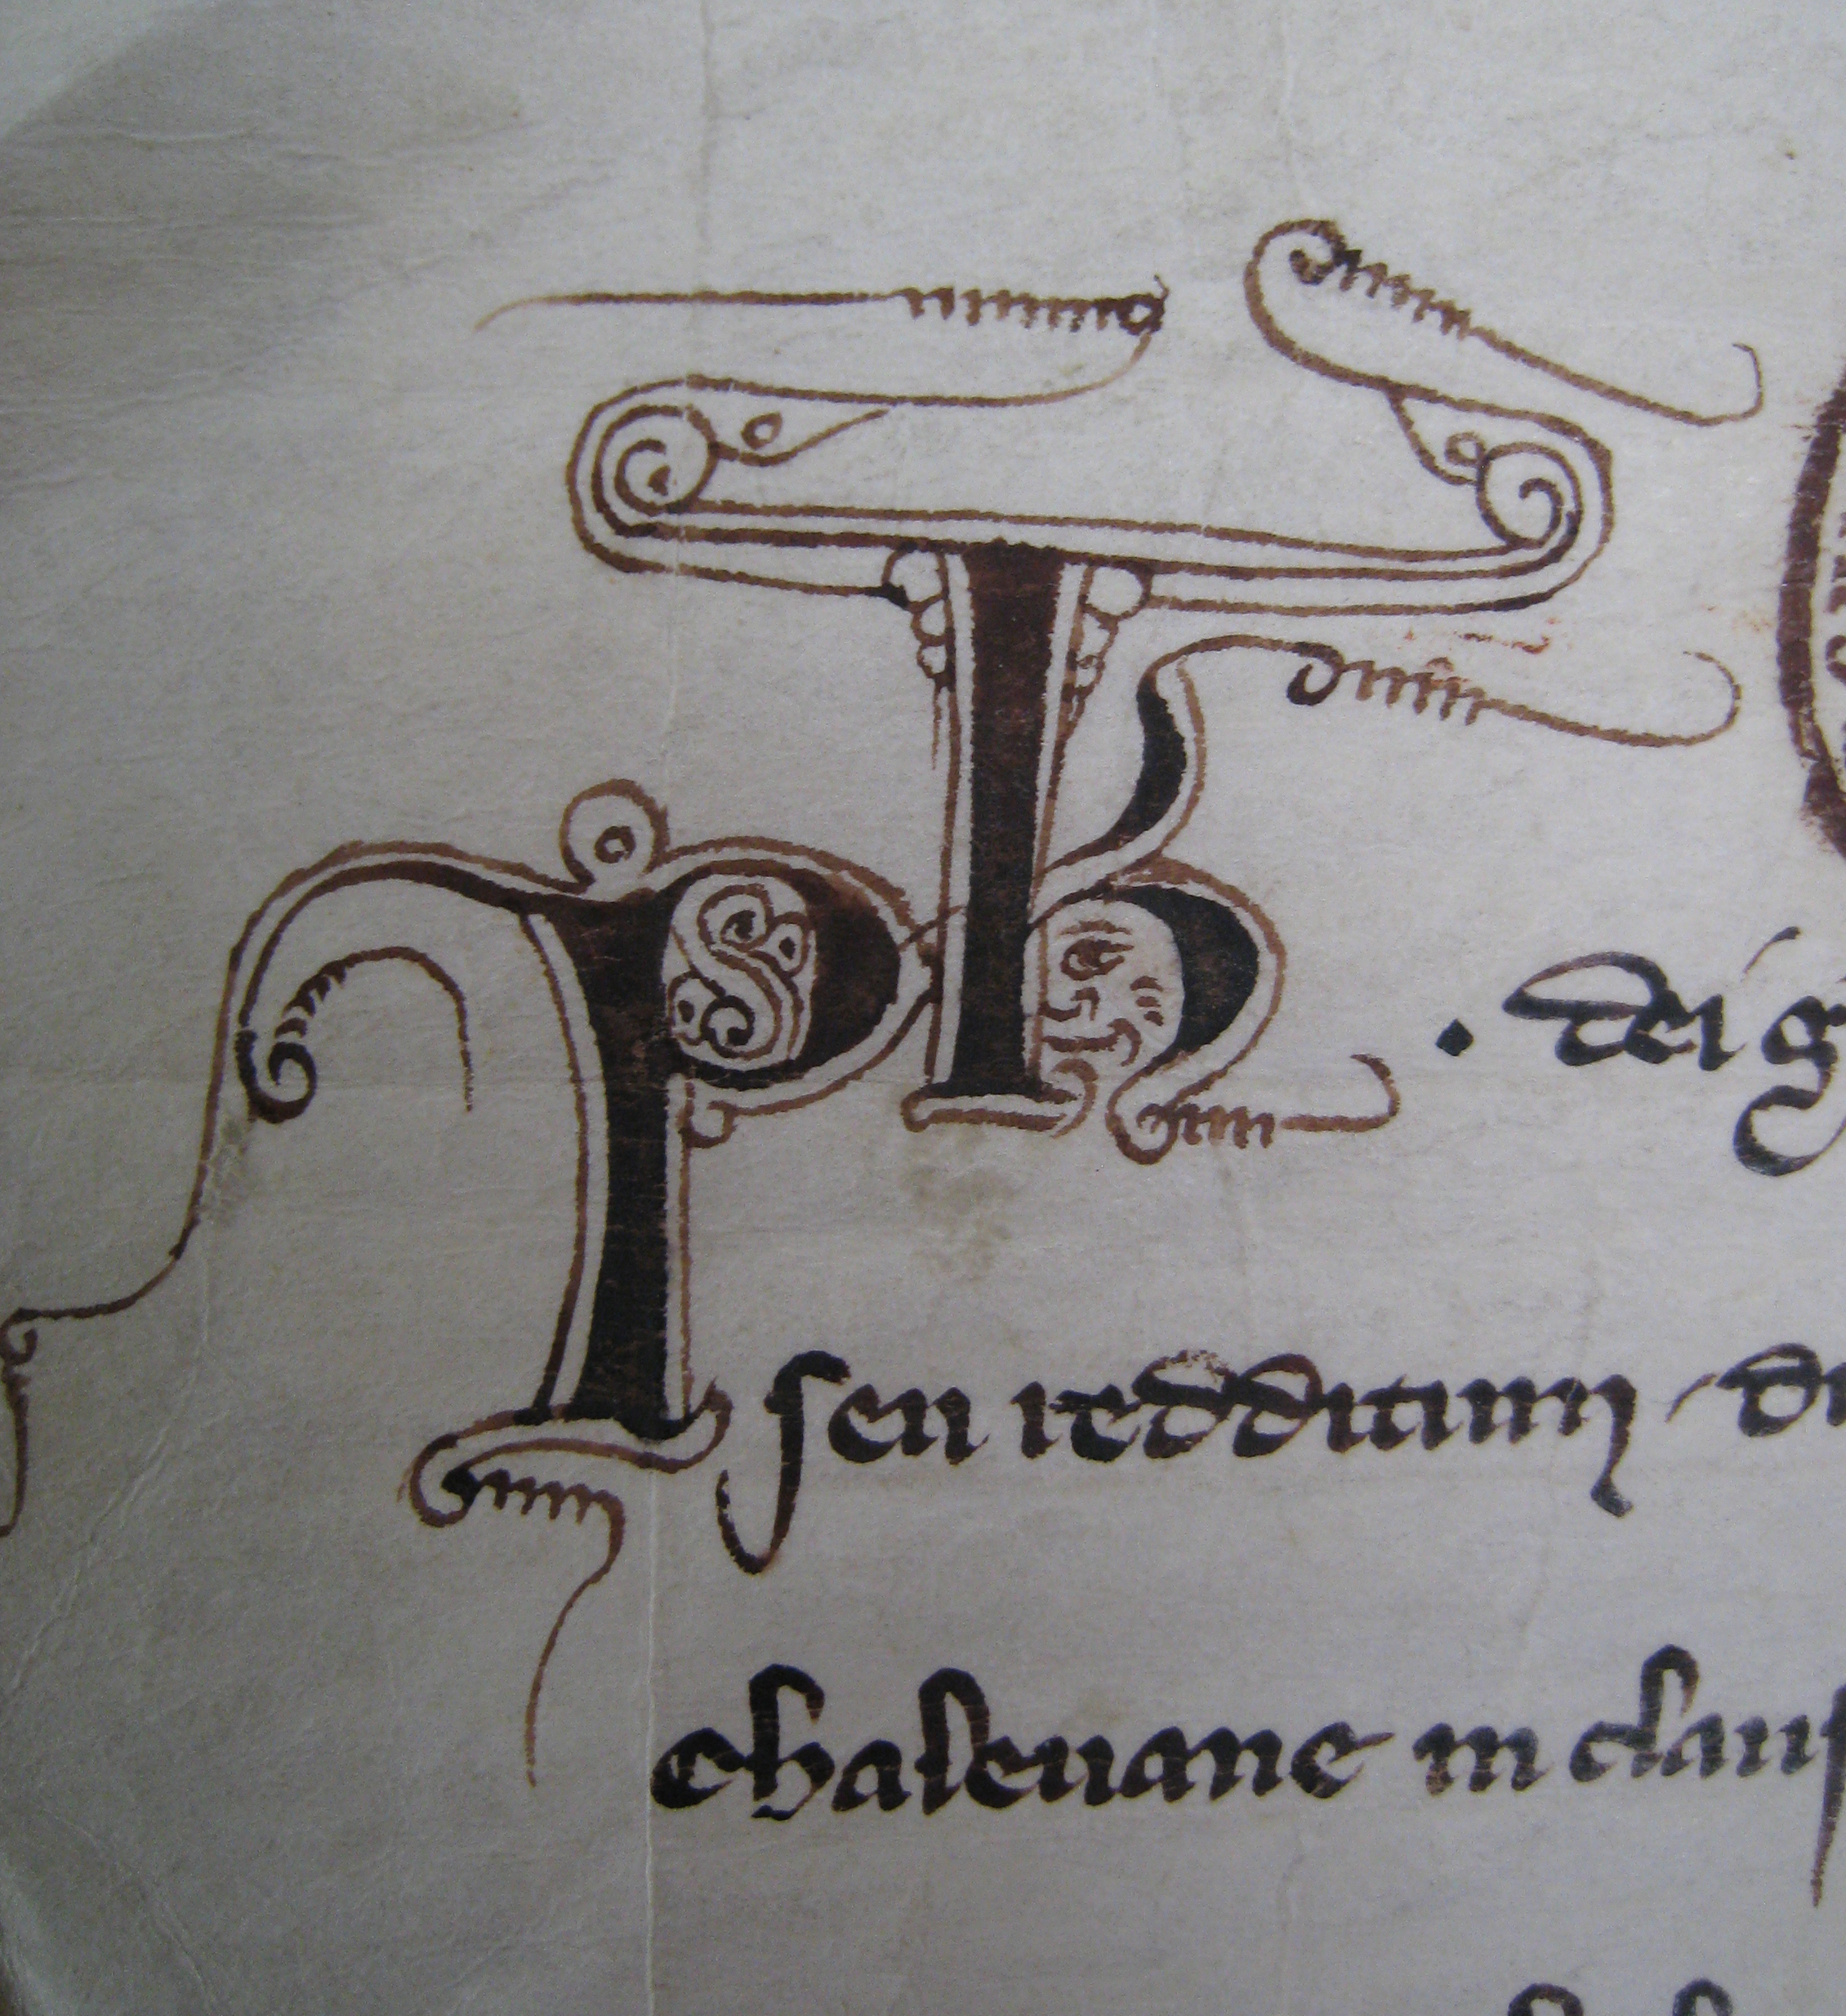 Ph . dei g
seu reddituum / di
Chalevane in claus